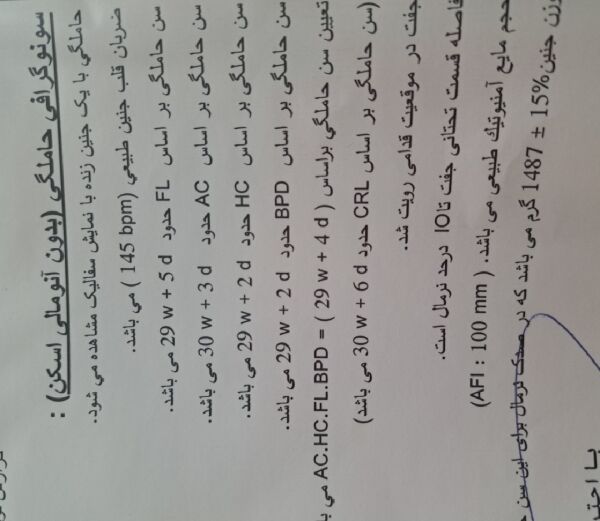 سونوگرافی حاملگی (بدون آنومالی اسکن) :
حاملگی با یک جنین زنده با نمایش سفالیک مشاهده می شود.
ضربان قلب جنین طبیعی (145 bpm) می باشد.
سن حاملگی بر اساس FL حدود 29 w + 5 d می باشد.
سن حاملگی بر اساس AC حدود 30 w + 3 d می باشد.
سن حاملگی بر اساس HC حدود 29 w + 2 d می باشد.
سن حاملگی بر اساس BPD حدود 29 w + 2 d می باشد.
تعیین سن حاملگی براساس AC.HC.FL.BPD = ( 29 w + 4 d ) می
(سن حاملگی بر اساس CRL حدود 30 w + 6 d می باشد)
جفت در موقعیت قدامی رویت شد.
فاصله قسمت تحتانی جفت تا IO درحد نرمال است.
حجم مایع آمنیوتیک طبیعی می باشد. ( AFI : 100 mm)
وزن جنین 1487 ± 15% گرم می باشد که در صدک نرمال برای این سن
با